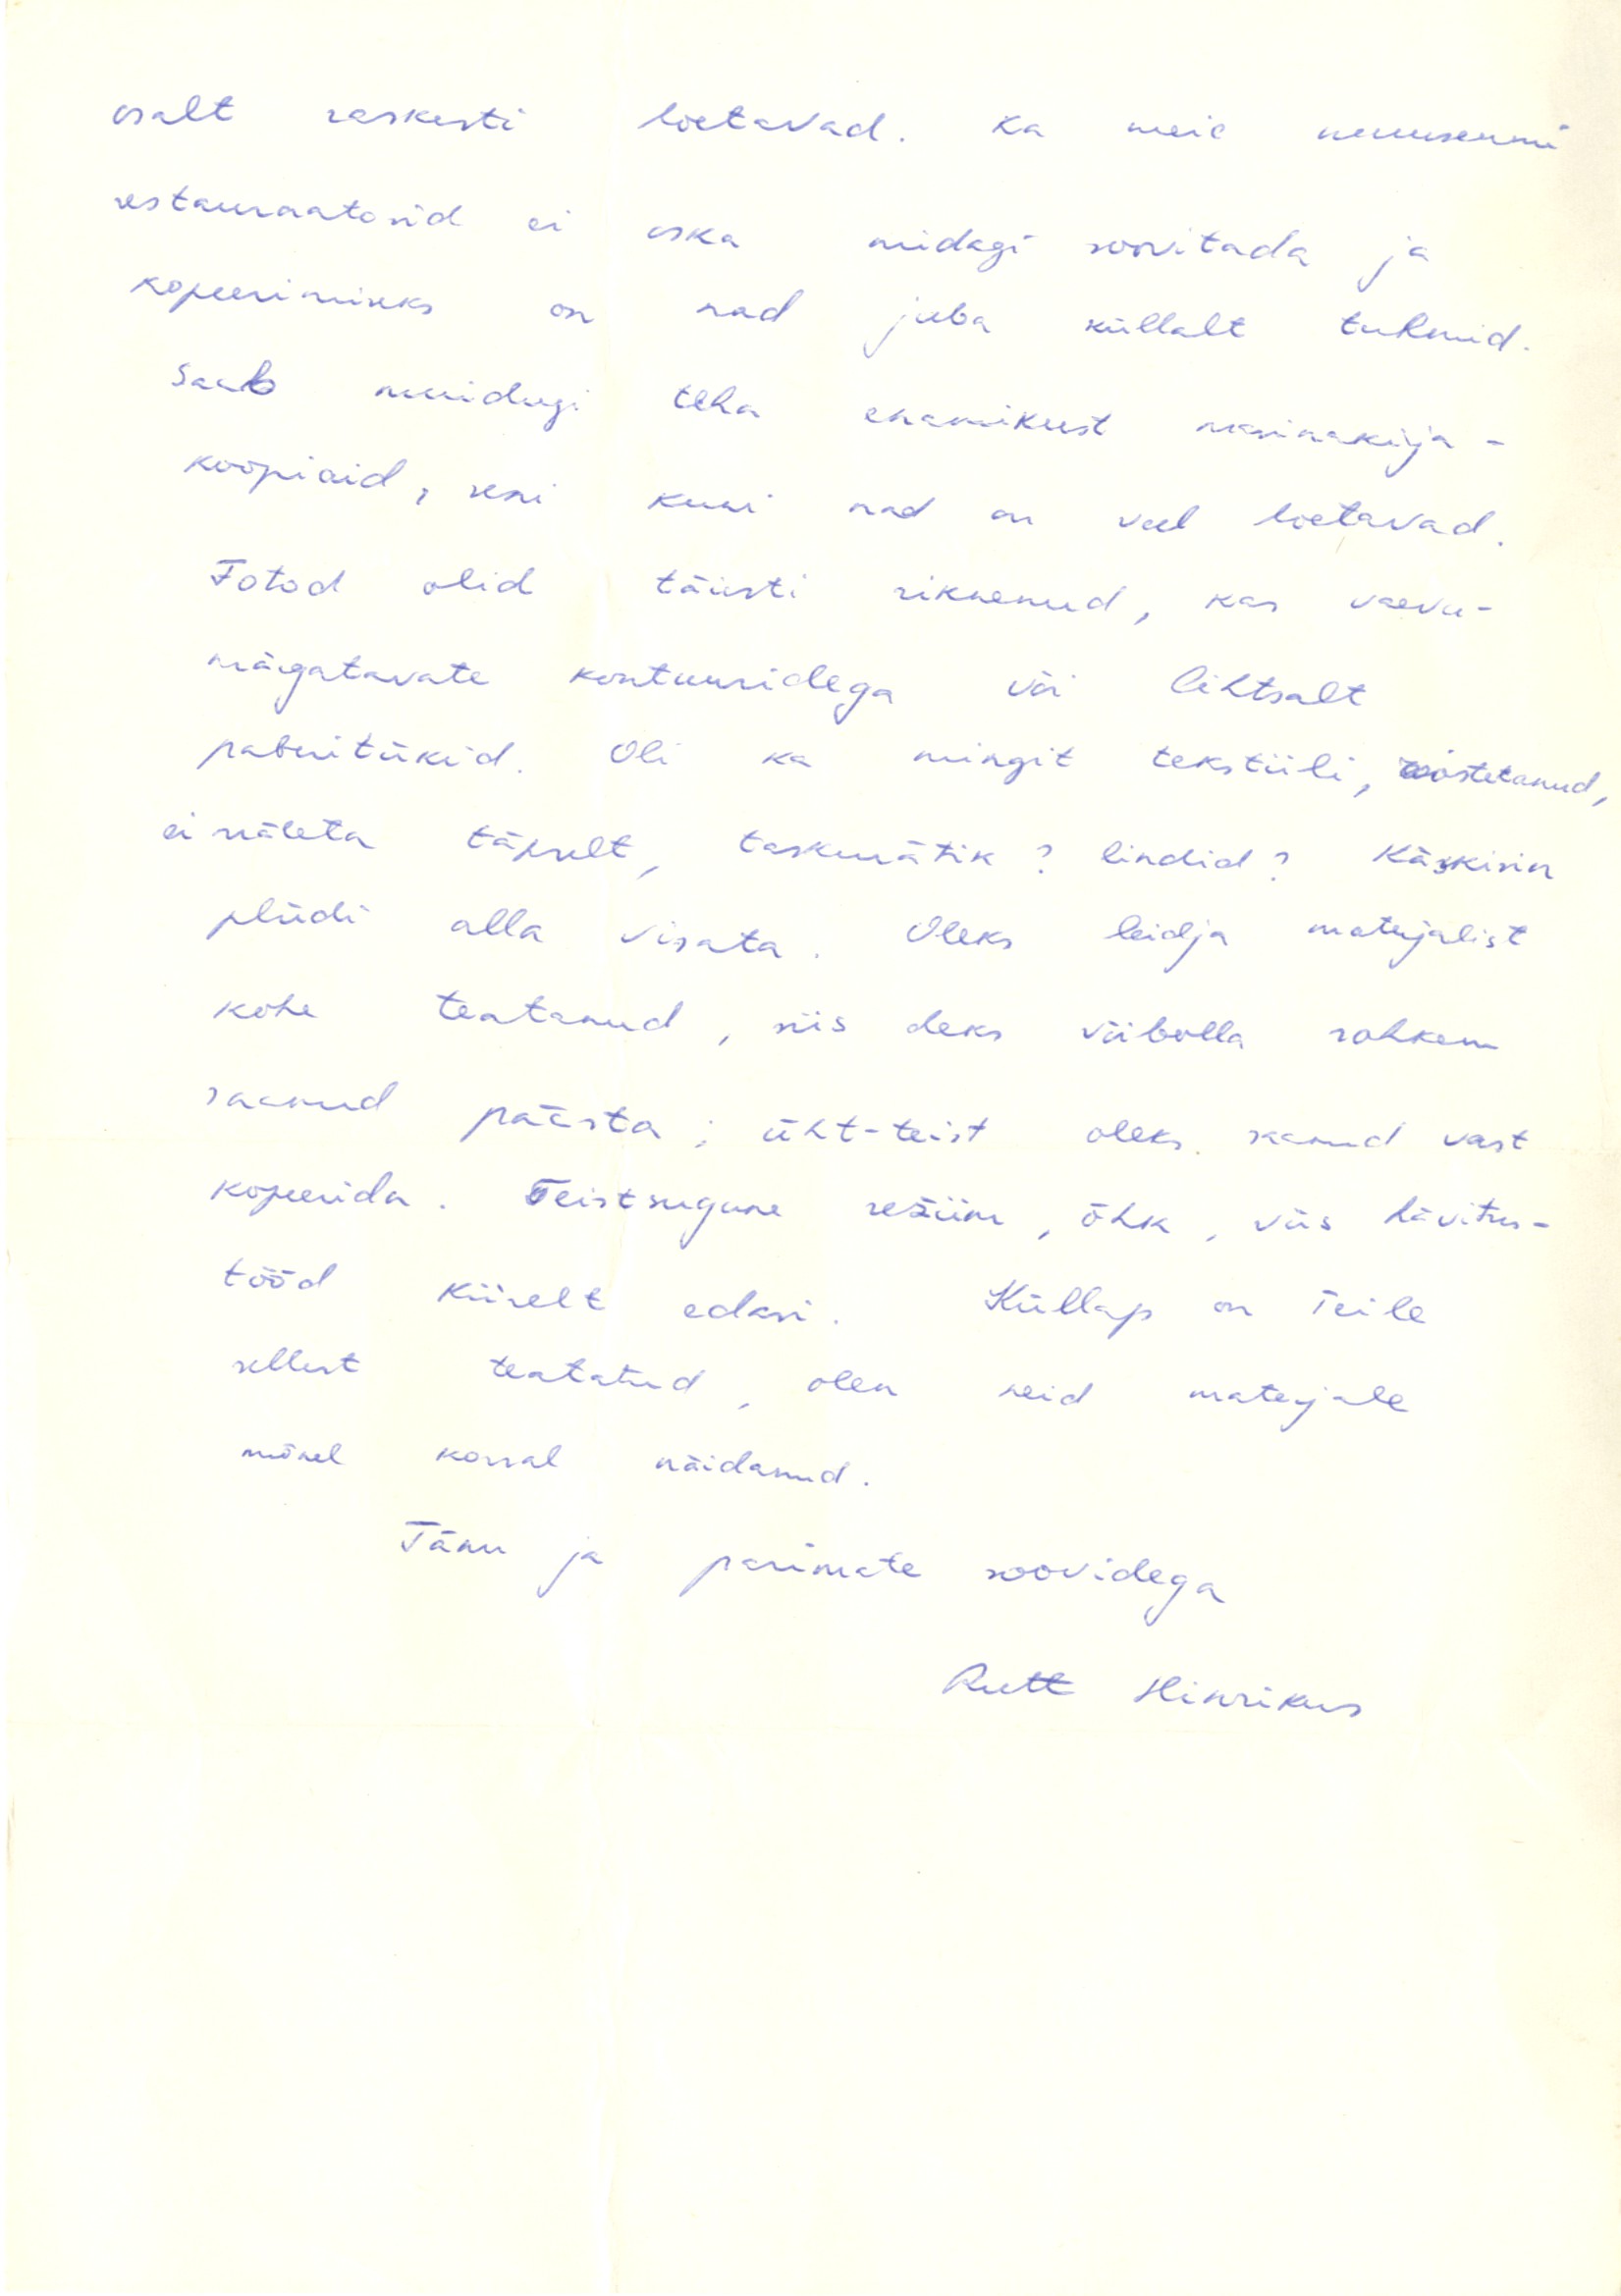 osalt raskesti loetavad. Ka meie muuseumi
restauraatorid ei oska midagi soovitada ja
kopeerimiseks on nad juba küllalt tuhmid.
Saab muidugi teha enamikust masinakirja-
koopiaid, seni kuni nad on veel loetavad.
Fotod olid täiesti riknenud, kas vaevu-
märgatavate kontuuridega või lihtsalt
paberitükid. Oli ka mingit tekstiili, roostetanud,
ei mäleta täpselt, taskurätik? lindid? Käskisin
pliidi alla visata. Oleks leidja materjalist
kohe teatanud, siis oleks võibolla rohkem
saanud päästa; üht-teist oleks saanud vast
kopeerida. Teistsugune režiim, õhk, viis hävitus-
tööd kiirelt edasi. Küllap on Teile
sellest teatatud, olen neid materjale
mõnel korral näidanud.
Tänu ja parimate soovidega
Rutt Hinrikus